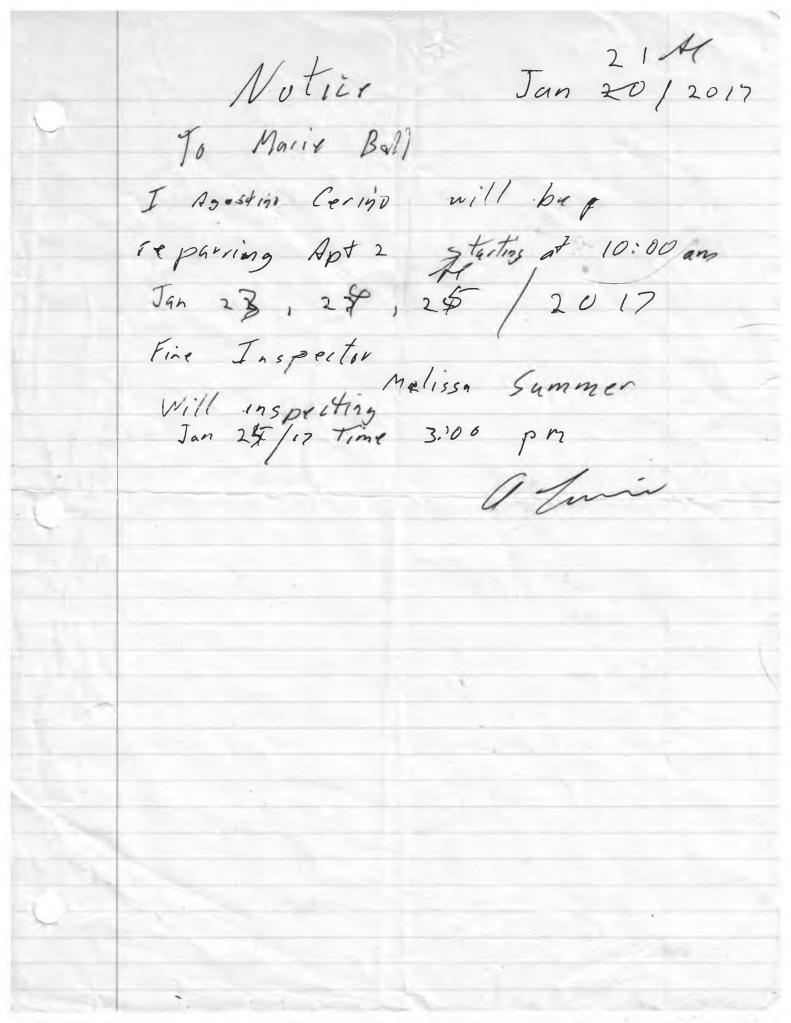 21
Notice Jan 20/2017
To Marie Ball
I Agostino Cerino will be
reparring Apt 2 starting at 10:00 am
Jan 23, 24, 25 / 2017
Fire Inspector
Melissa Summer
Will inspecting
Jan 25/17 Time 3:00 pm